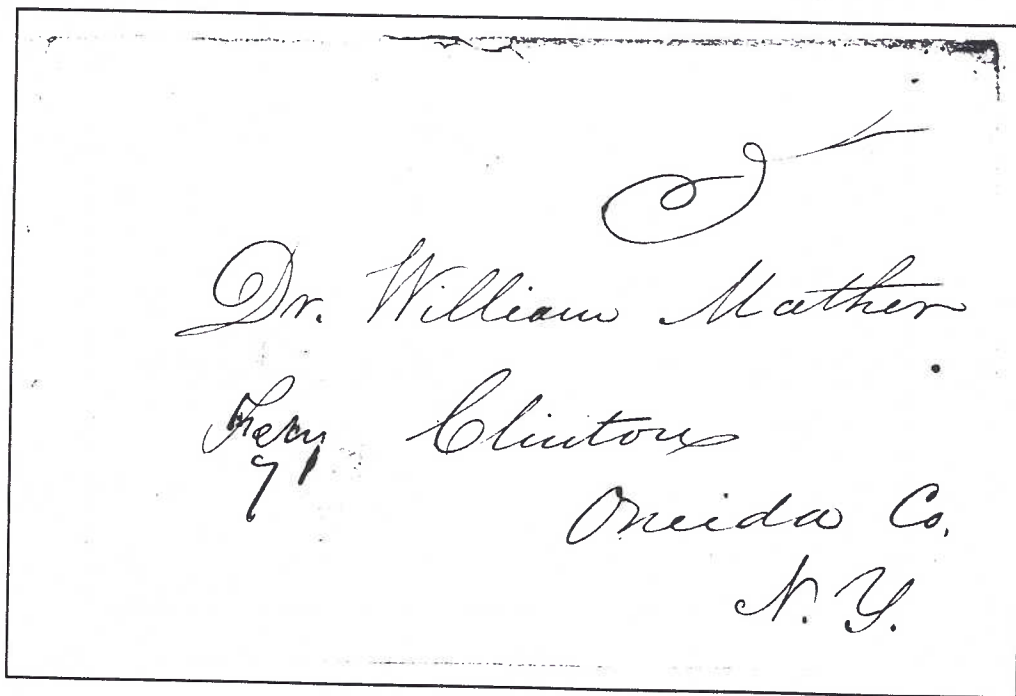 Dr. William Mather
Clinton
Oneida Co.
N. Y.